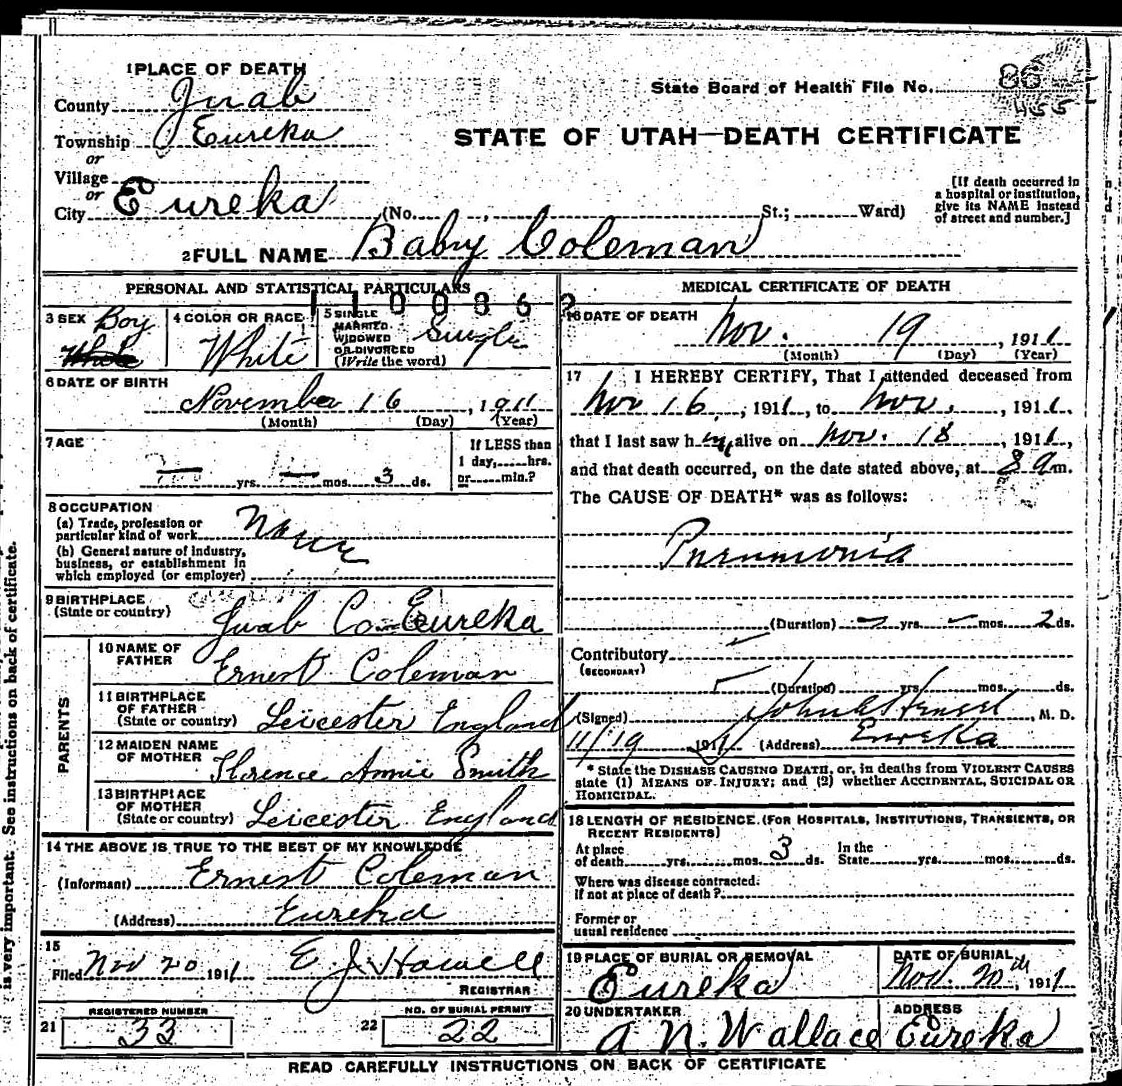 1 PLACE OF DEATH
County Juab
State Board of Health File No. 86
455
Township Eureka
or
Village
or
City Eureka (No. , St.; Ward)
STATE OF UTAH—DEATH CERTIFICATE
[If death occurred in
a hospital or institution,
give its NAME instead
of street and number.]
2 FULL NAME Baby Coleman
PERSONAL AND STATISTICAL PARTICULARS
1 1 0 0 8 6 2
3 SEX Boy
White
4 COLOR OR RACE
White
5 SINGLE
MARRIED
WIDOWED
OR DIVORCED
(Write the word)
Single
6 DATE OF BIRTH
November 16, 1911
(Month) (Day) (Year)
7 AGE
yrs. mos. 3 ds.
If LESS than
1 day, hrs.
or min.?
8 OCCUPATION
(a) Trade, profession or
particular kind of work None
(b) General nature of industry,
business, or establishment in
which employed (or employer)
9 BIRTHPLACE
(State or country) Juab Co Eureka
PARENTS
10 NAME OF
FATHER Ernest Coleman
11 BIRTHPLACE
OF FATHER
(State or country) Leicester England
12 MAIDEN NAME
OF MOTHER Florence Annie Smith
13 BIRTHPLACE
OF MOTHER
(State or country) Leicester England
14 THE ABOVE IS TRUE TO THE BEST OF MY KNOWLEDGE
(Informant) Ernest Coleman
(Address) Eureka
15
Filed Nov 20 1911 E. J. Howell
REGISTRAR
REGISTERED NUMBER
21 33
NO. OF BURIAL PERMIT
22 22
MEDICAL CERTIFICATE OF DEATH
16 DATE OF DEATH
Nov. 19, 1911
(Month) (Day) (Year)
17 I HEREBY CERTIFY, That I attended deceased from
Nov 16, 1911, to Nov. , 1911,
that I last saw him alive on Nov. 18, 1911,
and that death occurred, on the date stated above, at 8 a m.
The CAUSE OF DEATH* was as follows:
Pneumonia
(Duration) yrs. mos. 2 ds.
Contributory
(SECONDARY)
(Duration) yrs. mos. ds.
(Signed) John Hensel, M. D.
11/19 1911 (Address) Eureka
* State the DISEASE CAUSING DEATH, or, in deaths from VIOLENT CAUSES
state (1) MEANS OF INJURY; and (2) whether ACCIDENTAL, SUICIDAL OR
HOMICIDAL.
18 LENGTH OF RESIDENCE (FOR HOSPITALS, INSTITUTIONS, TRANSIENTS, OR
RECENT RESIDENTS)
At place In the
of death yrs. mos. 3 ds. State yrs. mos. ds.
Where was disease contracted.
if not at place of death?
Former or
usual residence
19 PLACE OF BURIAL OR REMOVAL
Eureka
DATE OF BURIAL
Nov. 20th, 1911
20 UNDERTAKER
A. N. Wallace
ADDRESS
Eureka
READ CAREFULLY INSTRUCTIONS ON BACK OF CERTIFICATE
is very important. See instructions on back of certificate.